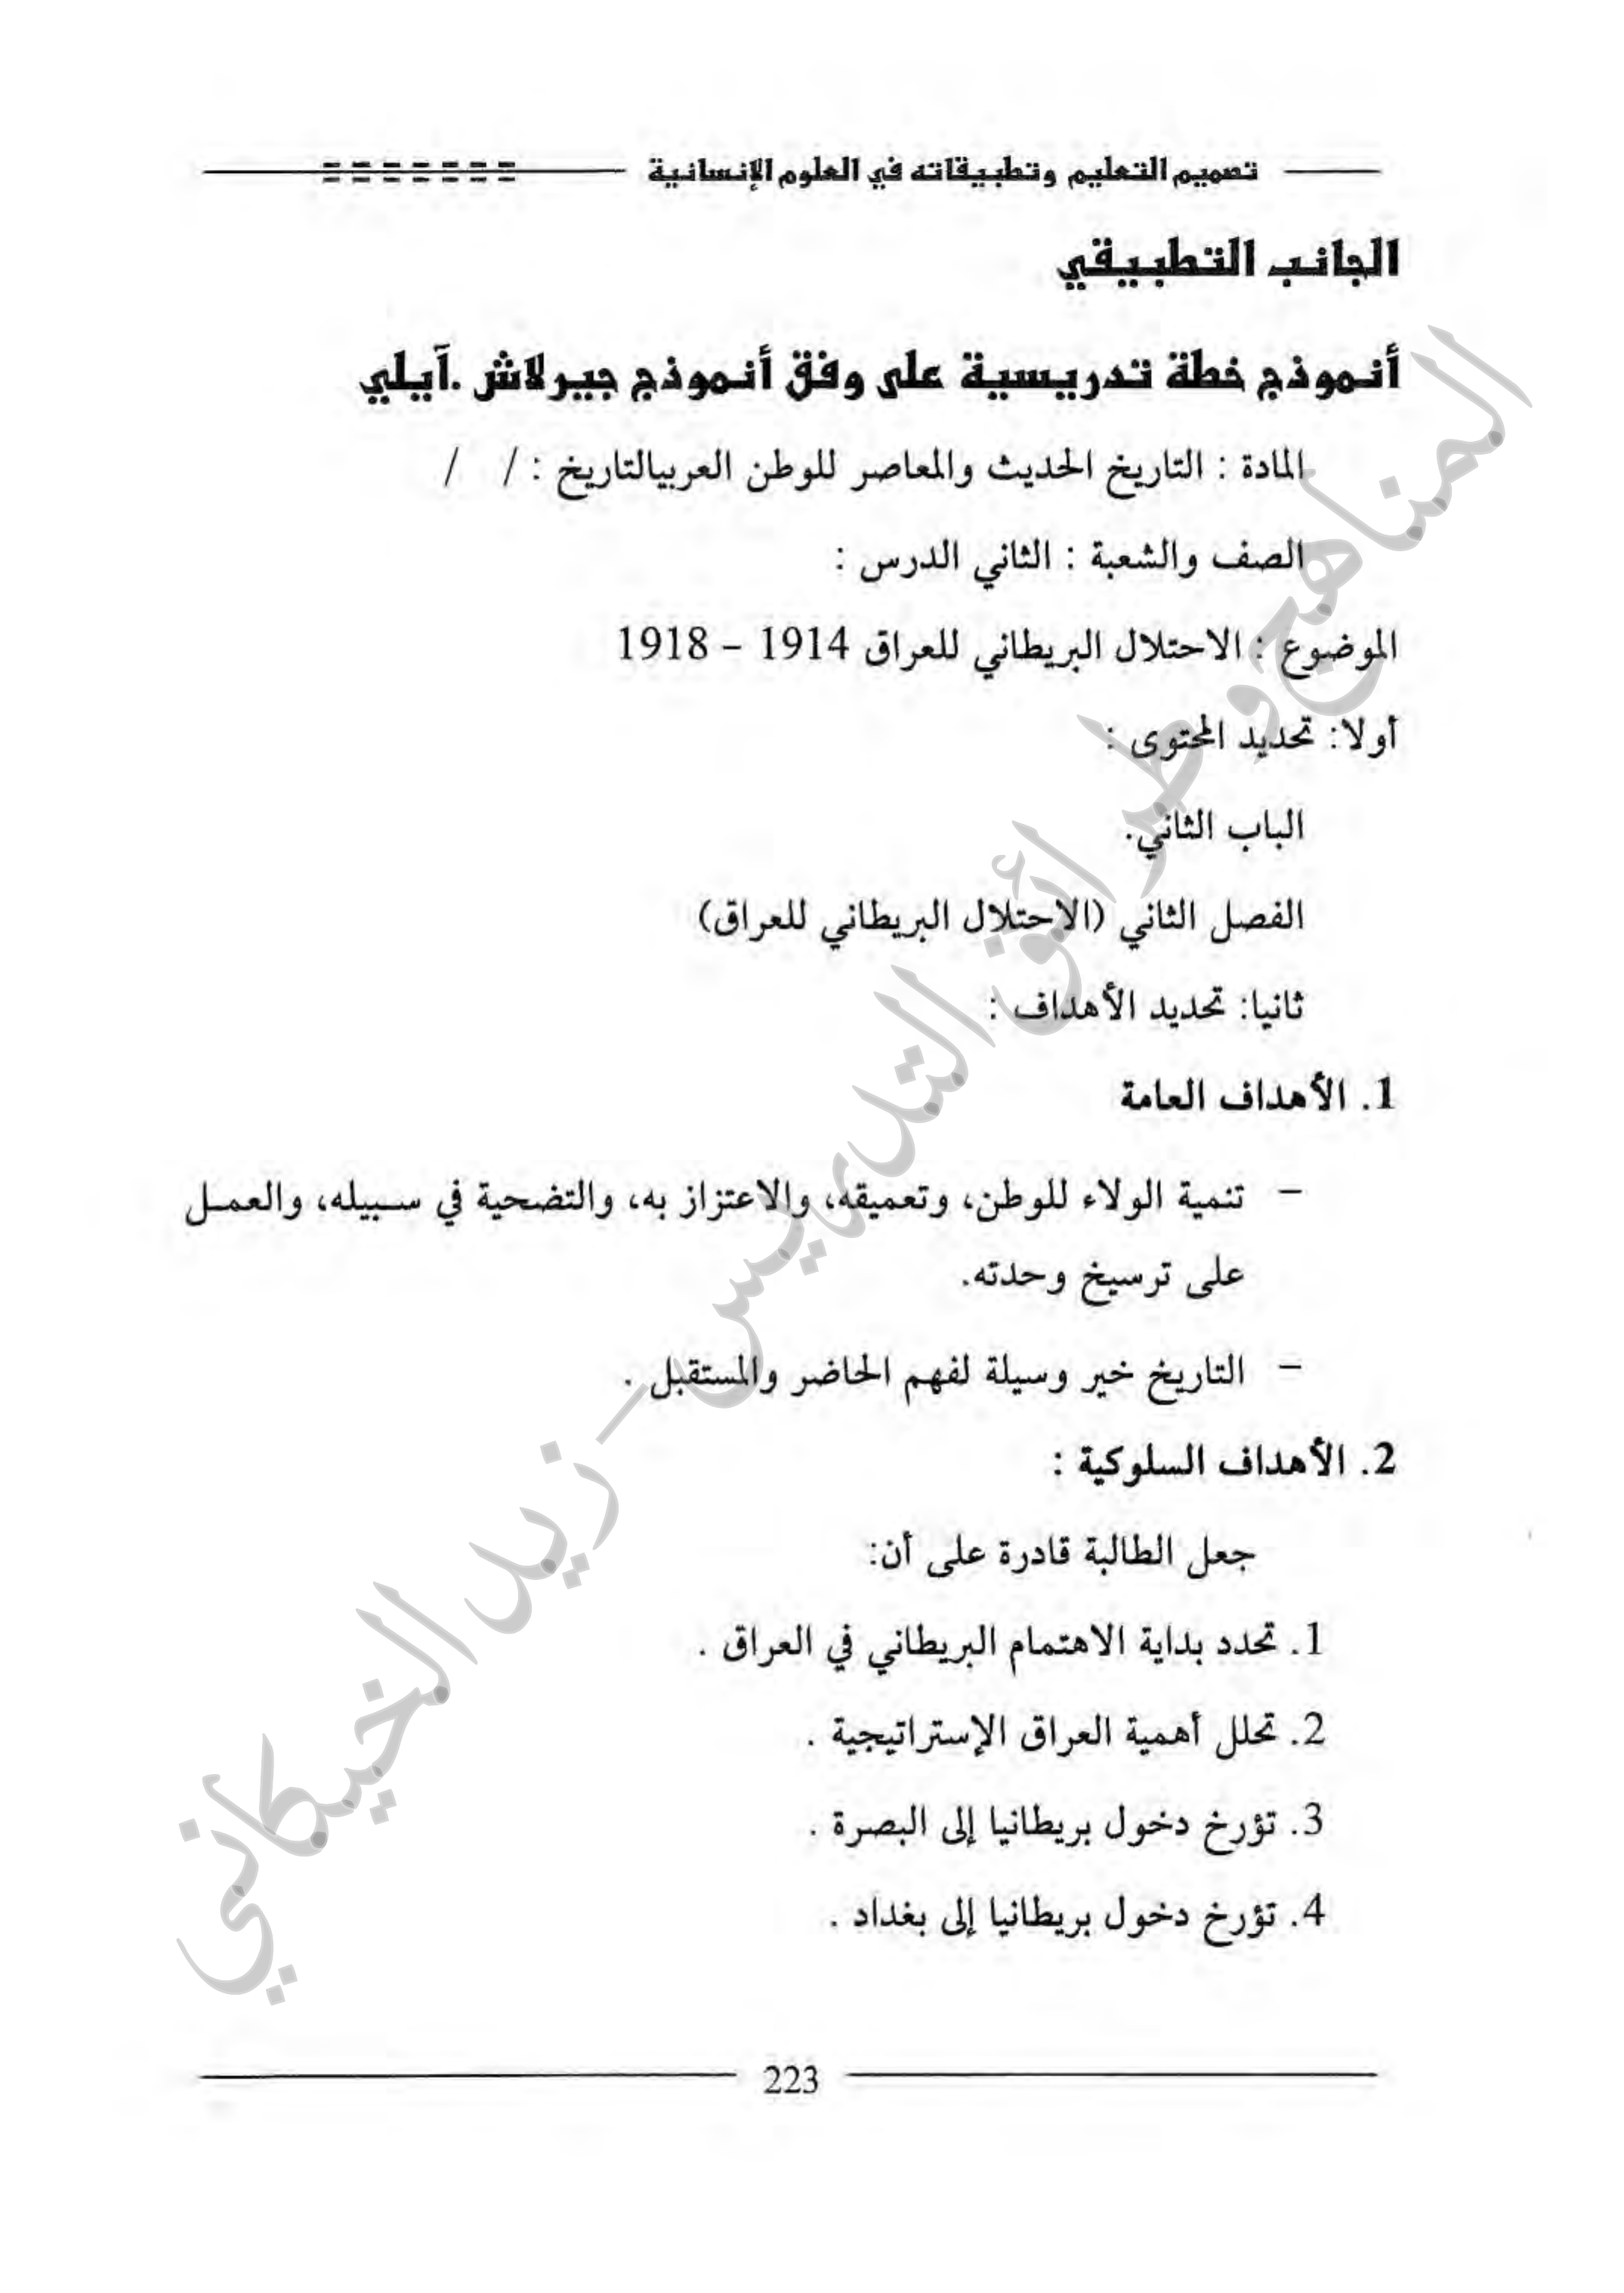 تصميم التعليم وتطبيقاته في العلوم الإنسانية
الجانب التطبيقي
أنموذج خطة تدريسية على وفق أنموذج جيرلاش .آيلي
المادة : التاريخ الحديث والمعاصر للوطن العربيالتاريخ : / /
الصف والشعبة : الثاني الدرس :
الموضوع : الاحتلال البريطاني للعراق 1914 – 1918
أولا: تحديد المحتوى :
الباب الثاني.
الفصل الثاني (الاحتلال البريطاني للعراق)
ثانيا: تحديد الأهداف :
1. الأهداف العامة
– تنمية الولاء للوطن، وتعميقه، والاعتزاز به، والتضحية في سبيله، والعمل
على ترسيخ وحدته.
– التاريخ خير وسيلة لفهم الحاضر والمستقبل .
2. الأهداف السلوكية :
جعل الطالبة قادرة على أن:
1. تحدد بداية الاهتمام البريطاني في العراق .
2. تحلل أهمية العراق الإستراتيجية .
3. تؤرخ دخول بريطانيا إلى البصرة .
4. تؤرخ دخول بريطانيا إلى بغداد .
223
المناهج وطرائق التدريس – زيد الخيكاني